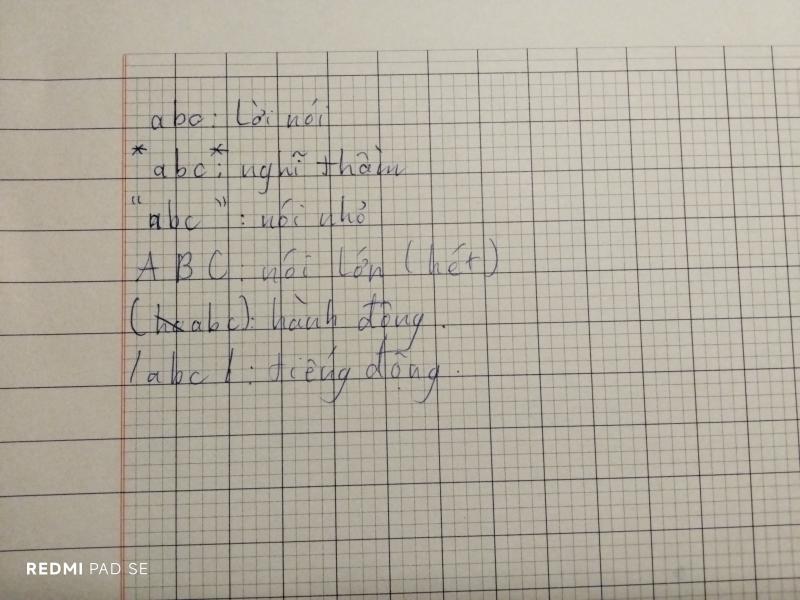 abc: Lời nói
*abc*: nghĩ thầm
"abc": nói nhỏ
ABC: nói lớn (hét)
(abc): hành động.
/abc/: tiếng động.
REDMI PAD SE